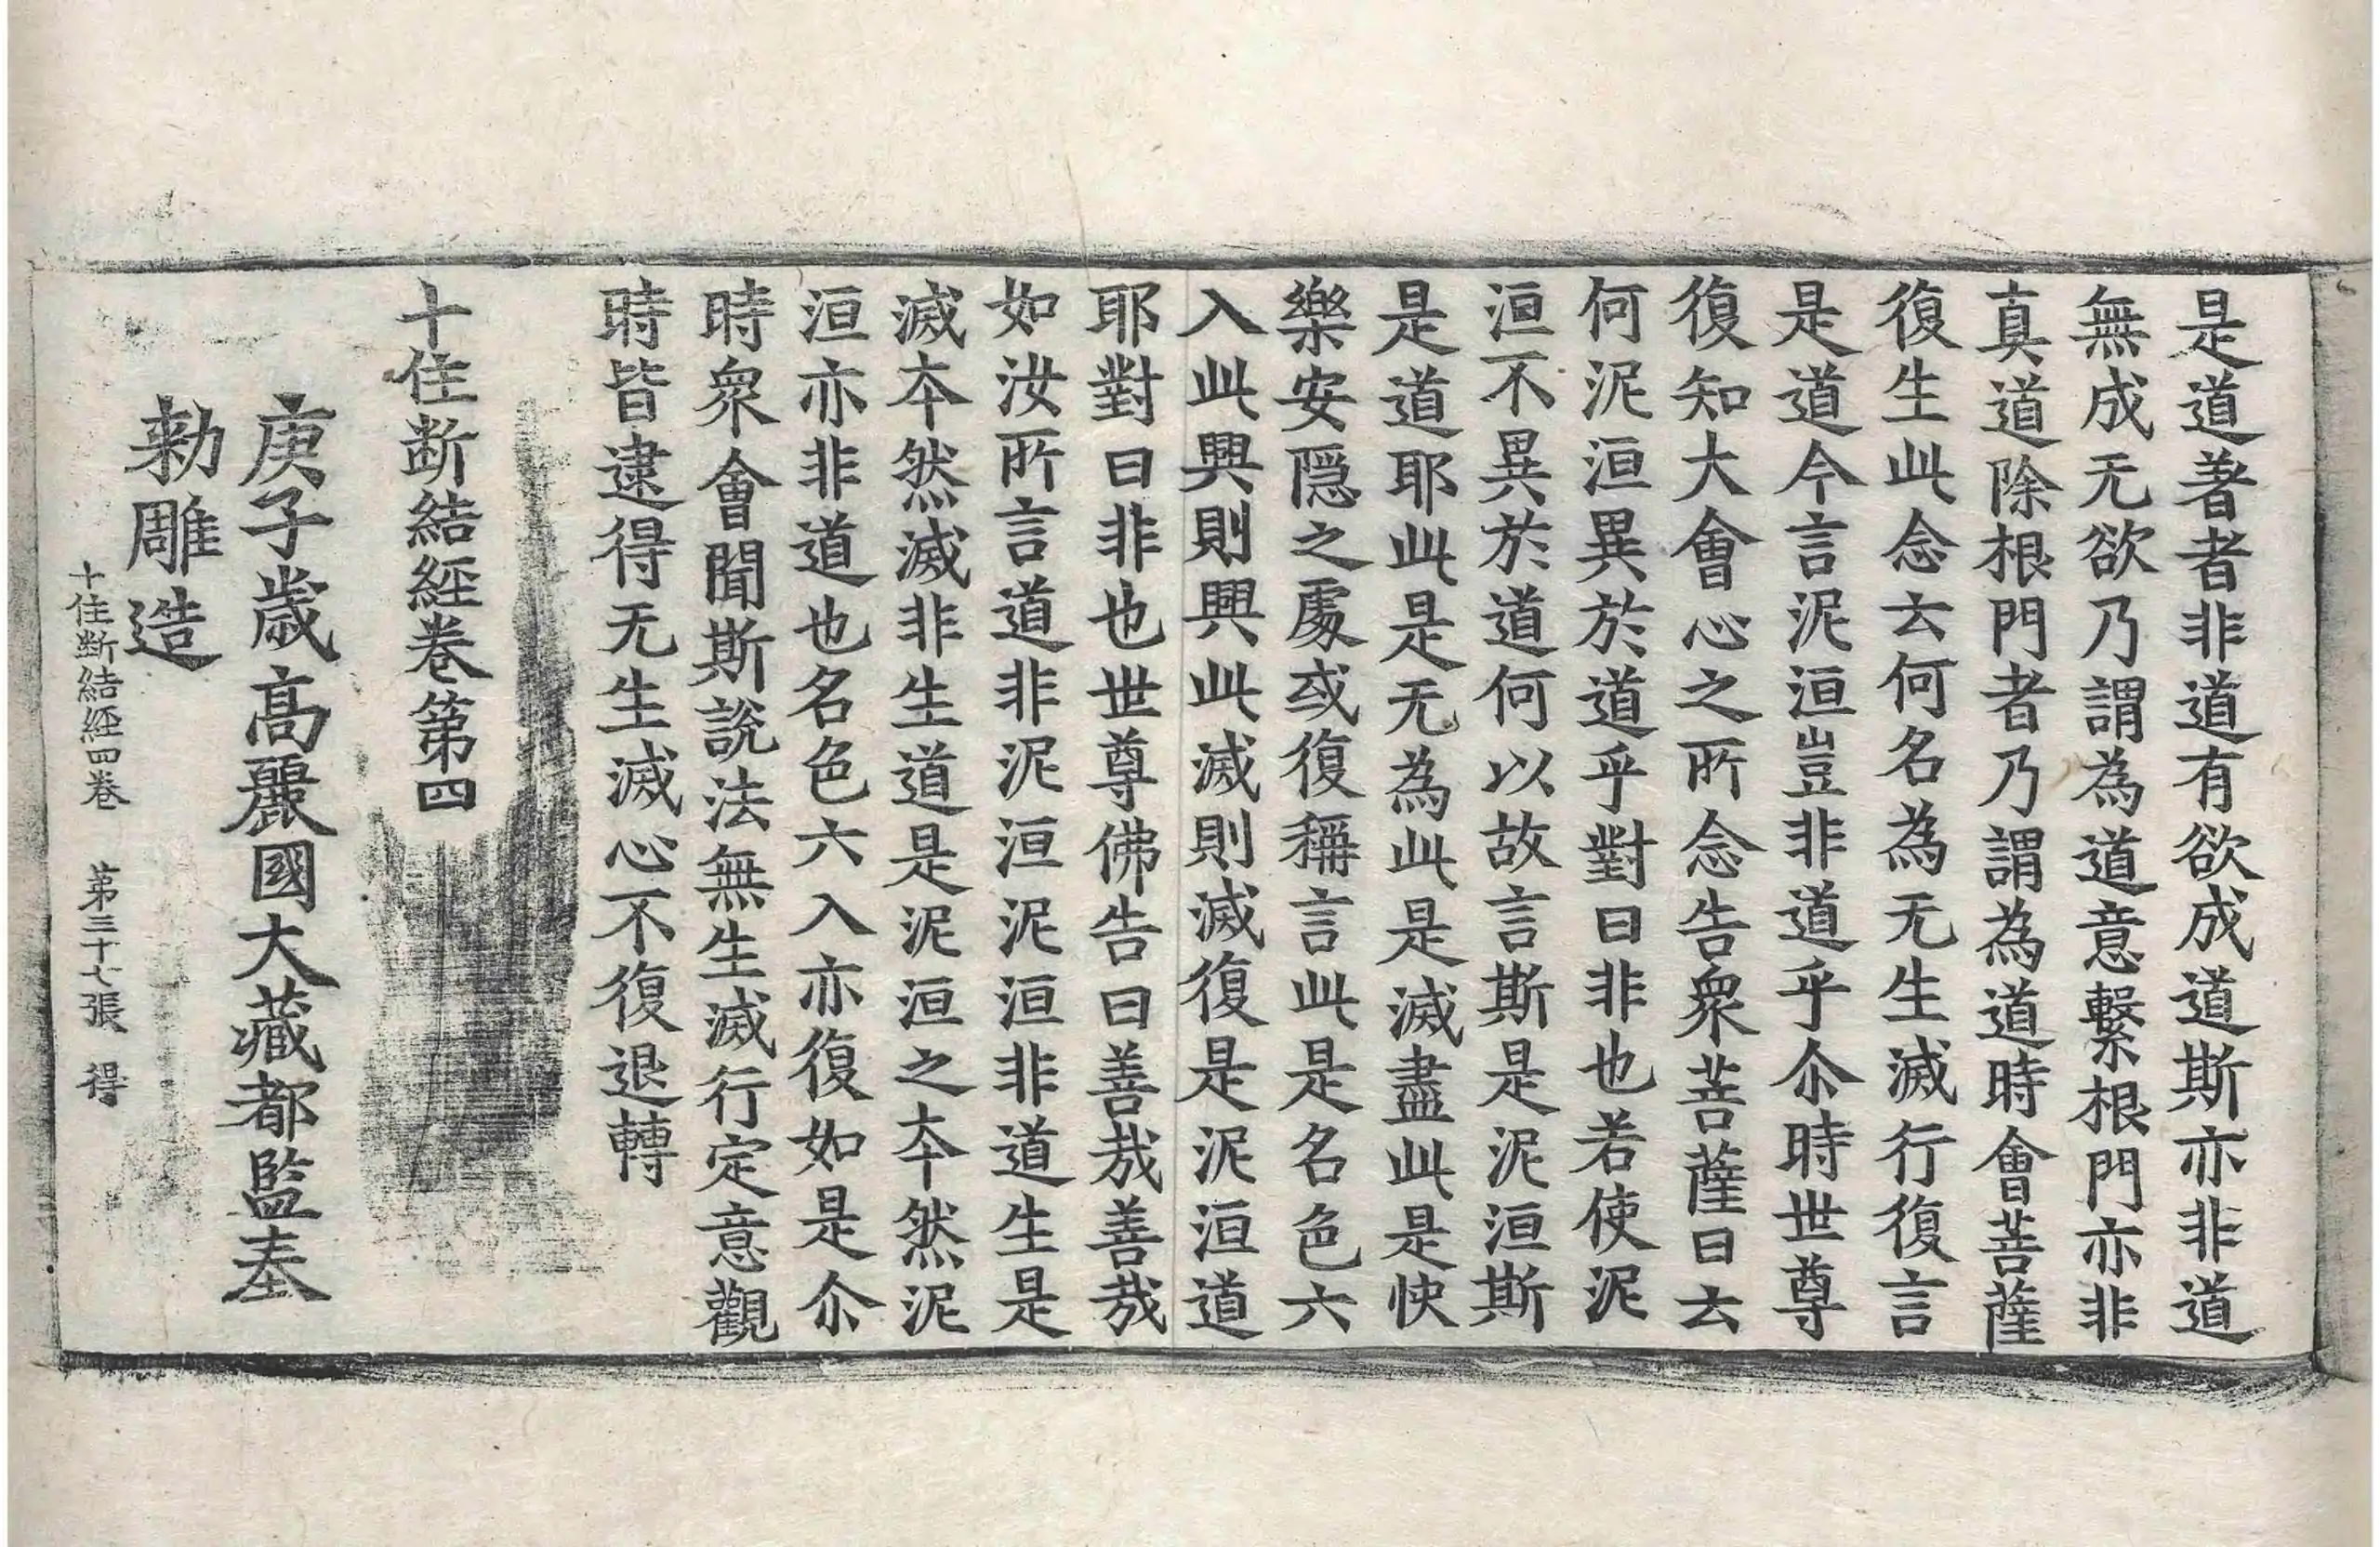 是道著者非道有欲成道斯亦非道
無成无欲乃謂為道意繫根門亦非
真道除根門者乃謂為道時會菩薩
復生此念云何名為无生滅行復言
是道今言泥洹豈非道乎尒時世尊
復知大會心之所念告衆菩薩曰云
何泥洹異於道乎對曰非也若使泥
洹不異於道何以故言斯是泥洹斯
是道耶此是无為此是滅盡此是快
樂安隱之處或復稱言此是名色六
入此興則興此滅則滅復是泥洹道
耶對曰非也世尊佛告曰善哉善哉
如汝所言道非泥洹泥洹非道生是
滅本然滅非生道是泥洹之本然泥
洹亦非道也名色六入亦復如是尒
時衆會聞斯說法無生滅行定意觀
時皆逮得无生滅心不復退轉
十住断結經卷第四
庚子歲高麗國大藏都監奉
勑雕造
十住断結經四卷 第三十七張 得